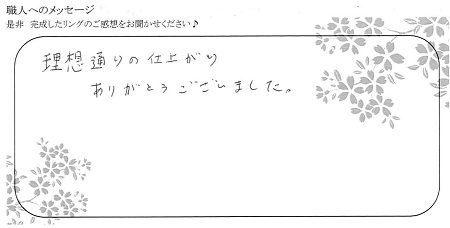 職人へのメッセージ
是非 完成したリングのご感想をお聞かせください♪
理想通りの仕上がり
ありがとうございました。